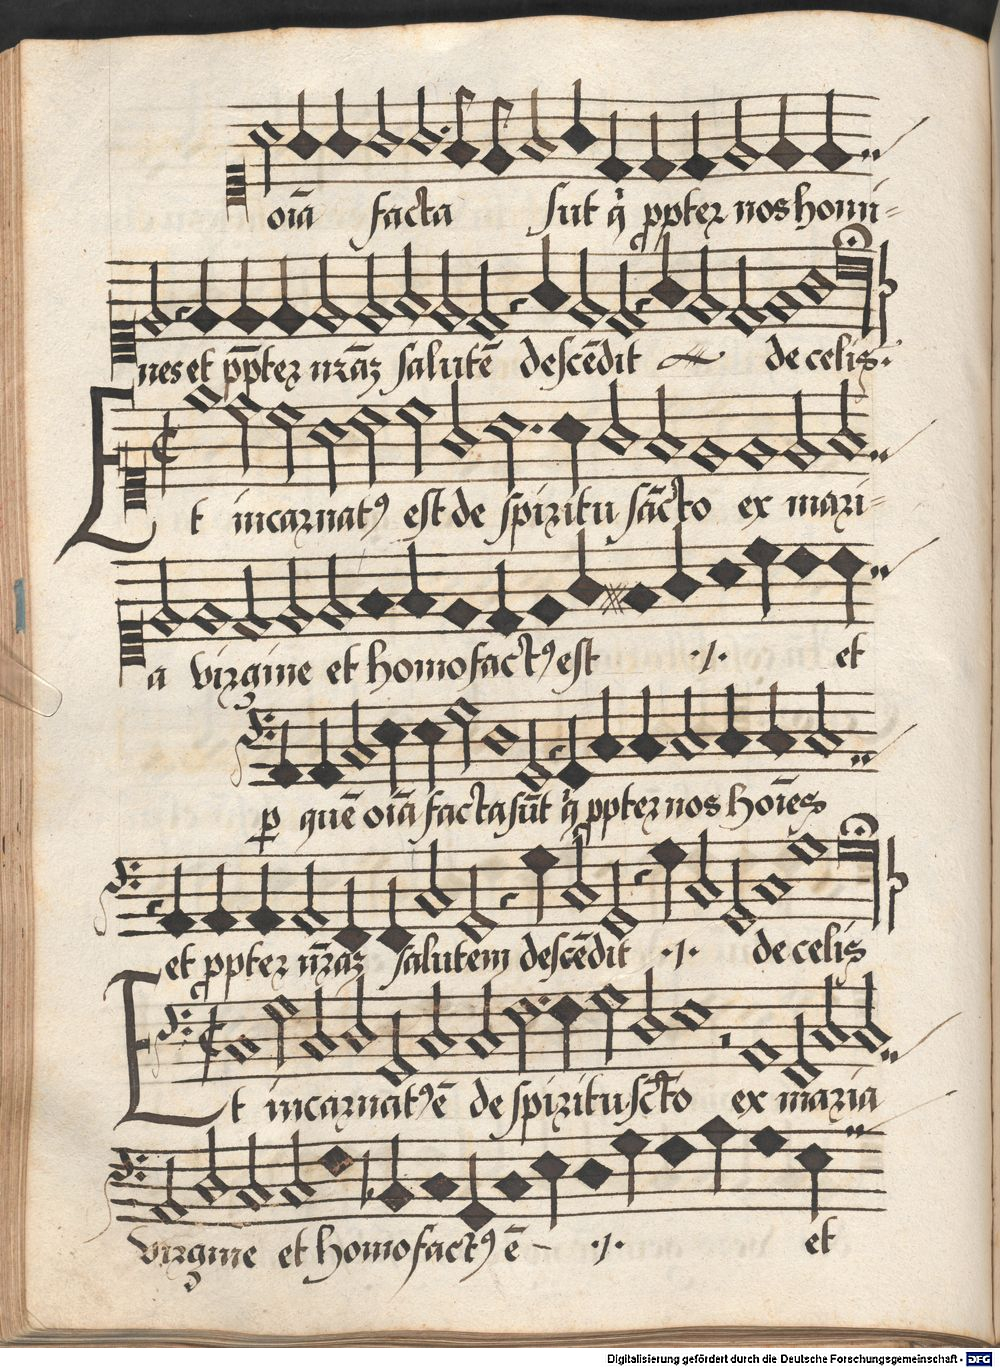 oīa facta sūt q̄ ppter nos homi=
nes et p̄pter nr̄az salutē descēdit de celis.
Et incarnatꝰ est de spiritu sācto ex mari=
a virgine et homo factꝰ est ·/· et
p quē oīa facta sūt q̄ ppter nos hoīes
et ppter nr̄az salutem descēdit ·/· de celis
Et incarnatꝰ ē de spiritu sc̄to ex maria
virgine et homo factꝰ ē ·/· et
Digitalisierung gefördert durch die Deutsche Forschungsgemeinschaft - DFG